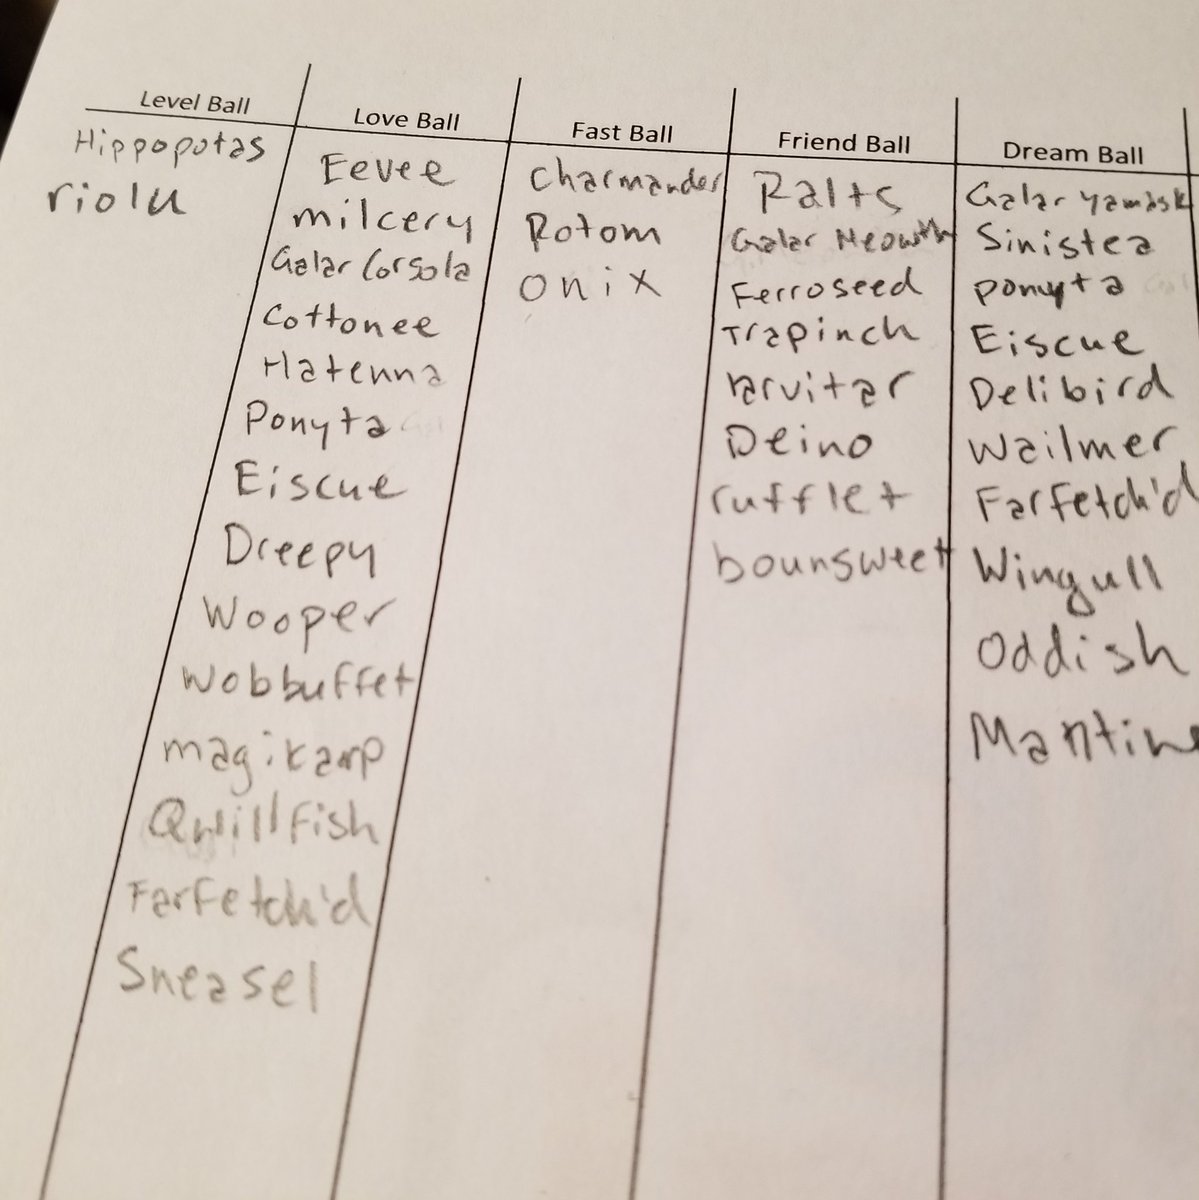 Level Ball
Hippopotas
riolu
Love Ball
Eevee
milcery
Galar Corsola
Cottonee
Hatenna
Ponyta
Eiscue
Dreepy
Wooper
Wobbuffet
magikarp
Qwillfish
Farfetch'd
Sneasel
Fast Ball
Charmander
Rotom
onix
Friend Ball
Ralts
Galar Meowth
Ferroseed
Trapinch
larvitar
Deino
rufflet
bounsweet
Dream Ball
Galar yamask
Sinistea
ponyta
Eiscue
Delibird
Wailmer
Farfetch'd
Wingull
Oddish
Mantine